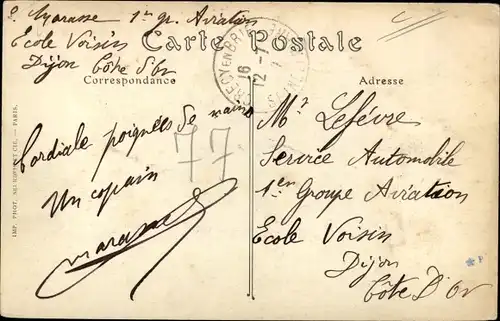 Marasse 1er gr. Aviation
Ecole Voisin
Dijon Côte d'Or
Carte Postale
Correspondance
Adresse
16 - 7
12
Cordiale poignées de mains
77
Un copain
Marasse
Mr Lefèvre
Service Automobile
1er Groupe Aviation
Ecole Voisin
Dijon
Côte D'Or
IMP. PHOT. NEURDEIN ET CIE. — PARIS.